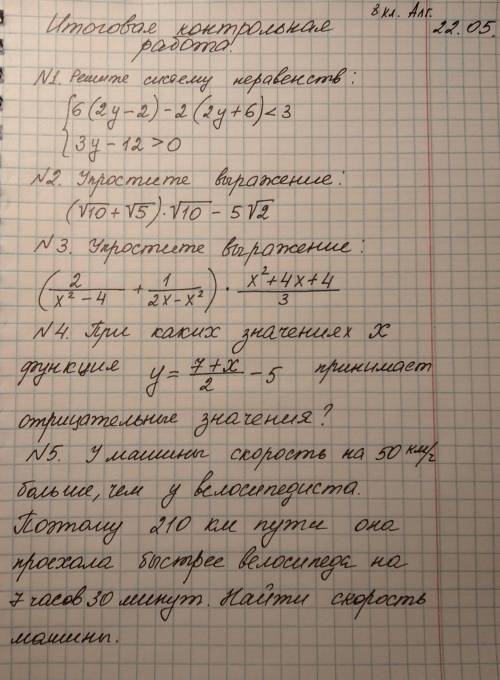 8 кл. Алг.
22.05.
Итоговая контрольная
работа.
№1. Решите систему неравенств:
{6(2y-2)-2(2y+6)<3
{3y-12>0
№2. Упростите выражение:
(√10+√5)·√10-5√2
№3. Упростите выражение:
(2/(x²-4) + 1/(2x-x²)) · (x²+4x+4)/3
№4. При каких значениях x
функция y = (7+x)/2 - 5 принимает
отрицательные значения?
№5. У машины скорость на 50 км/ч
больше, чем у велосипедиста.
Поэтому 210 км пути она
проехала быстрее велосипеда на
7 часов 30 минут. Найти скорость
машины.